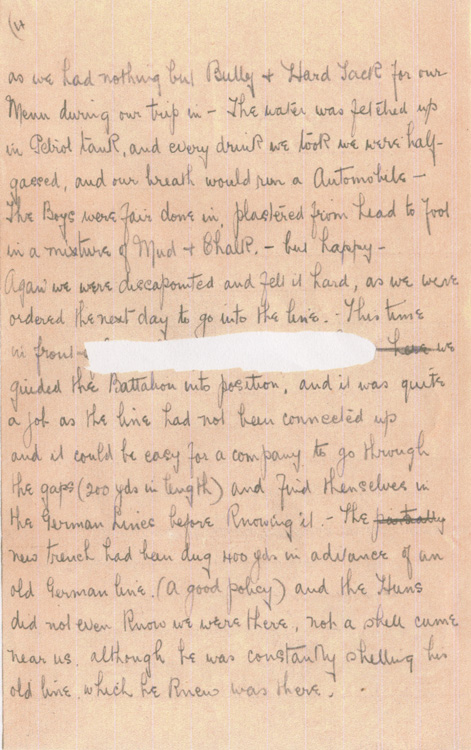 (4
as we had nothing but Bully + Hard Tack for our
Menu during our trip in – The water was fetched up
in Petrol tank, and every drink we took we were half-
gassed, and our breath would run a Automobile –
The Boys were fair done in, plastered from head to foot
in a mixture of Mud + Chalk. – but happy –
Again we were disapointed and felt it hard, as we were
ordered the next day to go into the line. – This time
in front here we
guided the Battalion into position, and it was quite
a job as the line had not been connected up
and it could be easy for a company to go through
the gaps (200 yds in length) and find themselves in
the German Lines before knowing it – The partially
new trench had been dug 400 yds in advance of an
old German line. (A good policy) and the Huns
did not even know we were there, not a shell came
near us. although he was constantly shelling his
old line which he knew was there. –